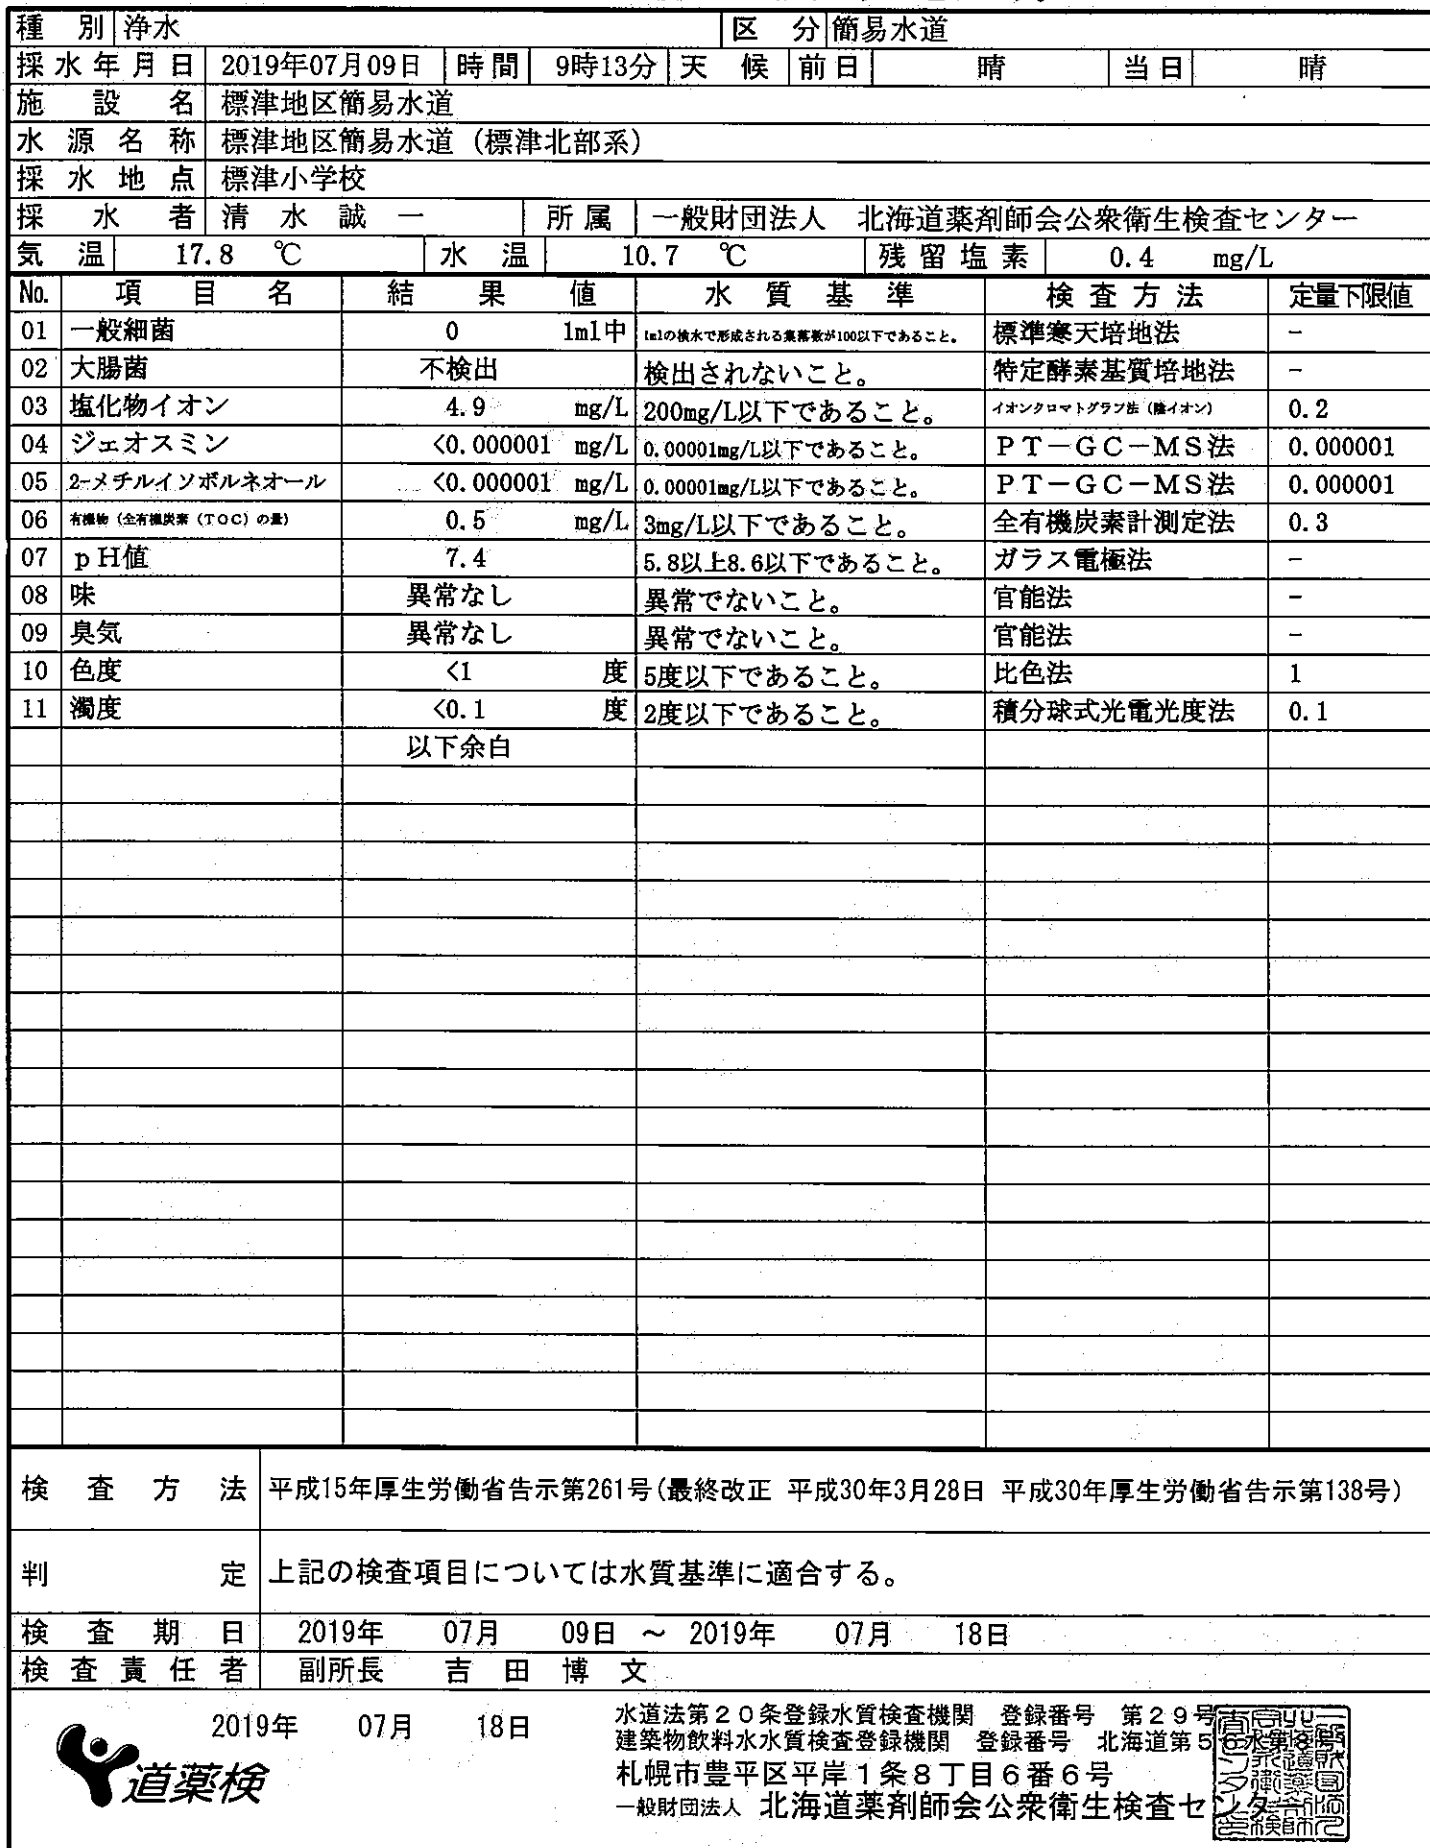 種別 浄水 区分 簡易水道
採水年月日 2019年07月09日 時間 9時13分 天候 前日 晴 当日 晴
施設名 標津地区簡易水道
水源名称 標津地区簡易水道（標津北部系）
採水地点 標津小学校
採水者 清水誠一 所属 一般財団法人 北海道薬剤師会公衆衛生検査センター
気温 17.8 ℃ 水温 10.7 ℃ 残留塩素 0.4 mg/L
No. 項目名 結果値 水質基準 検査方法 定量下限値
01 一般細菌 0 1ml中 1mlの検水で形成される集落数が100以下であること。 標準寒天培地法 −
02 大腸菌 不検出 検出されないこと。 特定酵素基質培地法 −
03 塩化物イオン 4.9 mg/L 200mg/L以下であること。 イオンクロマトグラフ法（陰イオン） 0.2
04 ジェオスミン <0.000001 mg/L 0.00001mg/L以下であること。 ＰＴ−ＧＣ−ＭＳ法 0.000001
05 2-メチルイソボルネオール <0.000001 mg/L 0.00001mg/L以下であること。 ＰＴ−ＧＣ−ＭＳ法 0.000001
06 有機物（全有機炭素（ＴＯＣ）の量） 0.5 mg/L 3mg/L以下であること。 全有機炭素計測定法 0.3
07 ｐＨ値 7.4 5.8以上8.6以下であること。 ガラス電極法 −
08 味 異常なし 異常でないこと。 官能法 −
09 臭気 異常なし 異常でないこと。 官能法 −
10 色度 <1 度 5度以下であること。 比色法 1
11 濁度 <0.1 度 2度以下であること。 積分球式光電光度法 0.1
以下余白
検査方法 平成15年厚生労働省告示第261号(最終改正 平成30年3月28日 平成30年厚生労働省告示第138号)
判定 上記の検査項目については水質基準に適合する。
検査期日 2019年 07月 09日 ～ 2019年 07月 18日
検査責任者 副所長 吉田博文
2019年 07月 18日
道薬検
水道法第２０条登録水質検査機関 登録番号 第２９号
建築物飲料水水質検査登録機関 登録番号 北海道第５６水第８号
札幌市豊平区平岸１条８丁目６番６号
一般財団法人 北海道薬剤師会公衆衛生検査センター